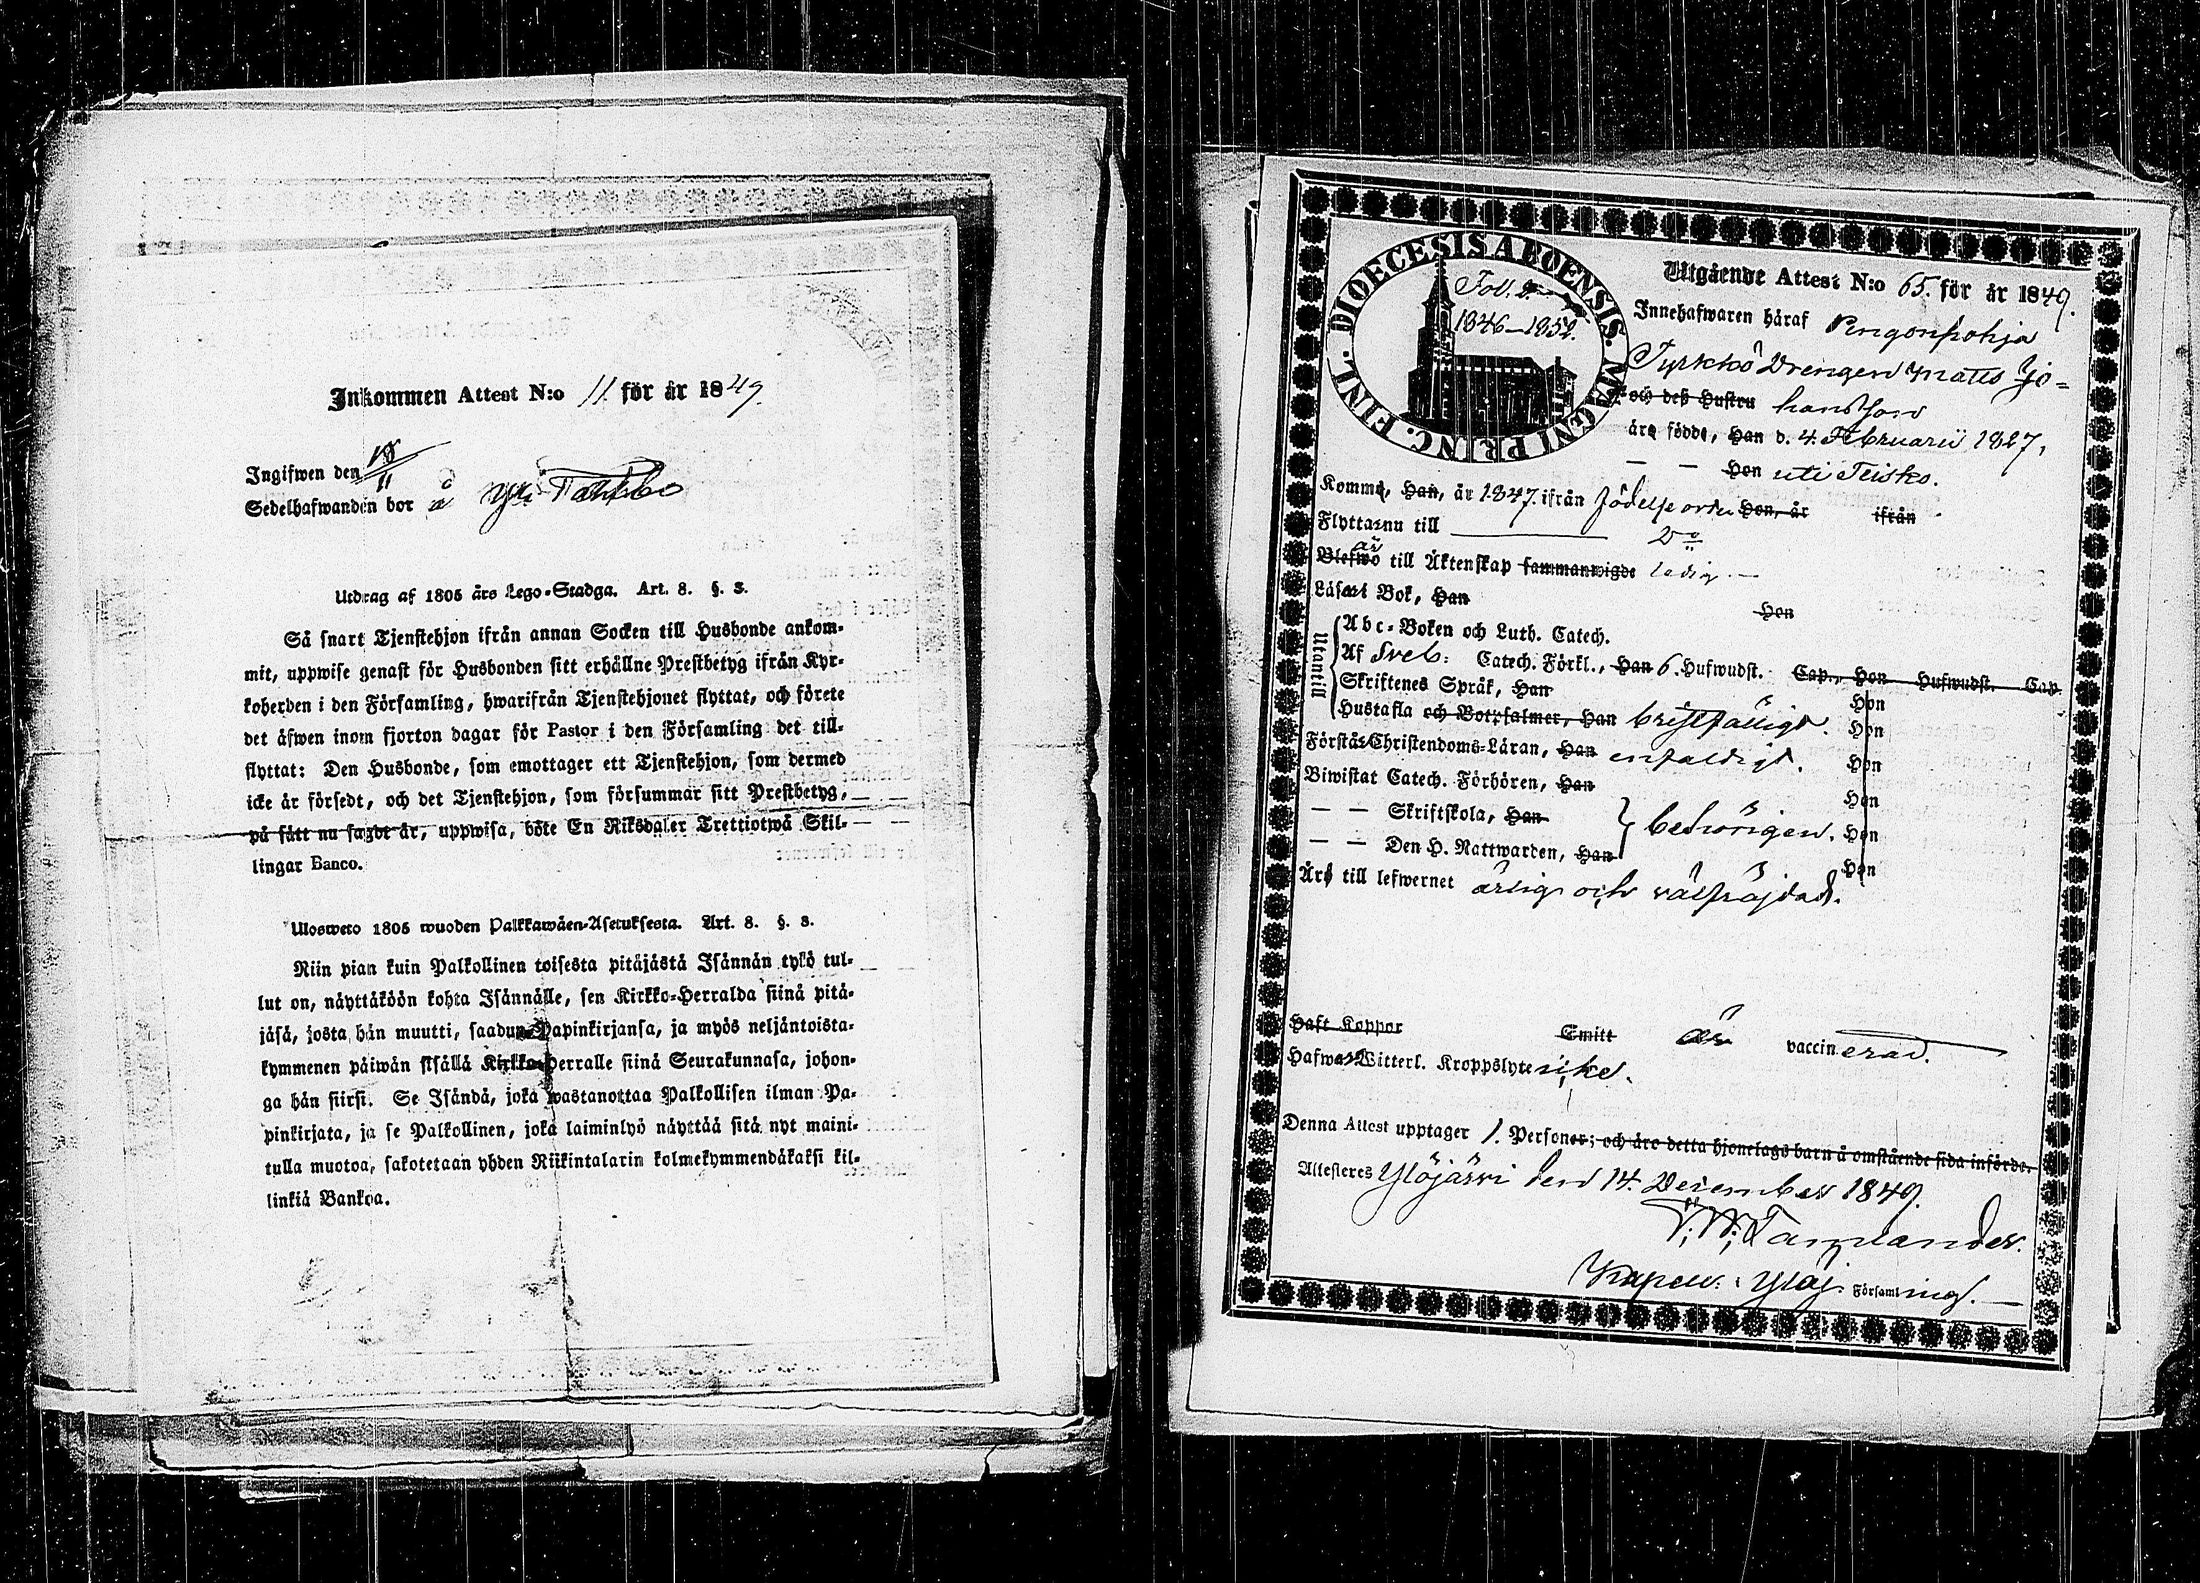 Inkommen Attest N:o 11 för år 1849.
Ingifwen den 18/11
Sedelhafwanden bor å
Utdrag af 1805 års Lego-Stadga. Art. 8. §. 3.
Så snart Tjenstehjon ifrån annan Socken till Husbonde ankom-
mit, uppwise genast för Husbonden sitt erhållne Prestbetyg ifrån Kyr-
koherden i den Församling, hwarifrån Tjenstehjonet flyttat, och förete
det äfwen inom fjorton dagar för Pastor i den Församling det till-
flyttat: Den Husbonde, som emottager ett Tjenstehjon, som dermed
icke är försedt, och det Tjenstehjon, som försummar sitt Prestbetyg,
på sätt nu sagdt är, uppwisa, böte En Riksdaler Trettiotwå Skil-
lingar Banco.
Ulosweto 1805 wuoden Palkkawäen-Asetuksesta. Art. 8. §. 3.
Niin pian kuin Palkollinen toisesta pitäjästä Isännän tykö tul-
lut on, näyttäköön kohta Isännälle, sen Kirkko-Herralda siinä pitä-
jäsä, josta hän muutti, saadun Papinkirjansa, ja myös neljäntoista-
kymmenen päiwän sisällä Kirkko-Herralle siinä Seurakunnasa, johon-
ga hän siirsi. Se Isändä, joka wastanottaa Palkollisen ilman Pa-
pinkirjata, ja se Palkollinen, joka laiminlyö näyttää sitä nyt maini-
tulla muotoa, sakotetaan yhden Riikintalarin kolmekymmendäkaksi kil-
linkiä Bankoa.
DIOECESIS ABOENSIS. MAGNI PRINC. FINL.
Fol. 2.
1846–1852.
Utgående Attest N:o 65. för år 1849.
Innehafwaren häraf Pengonpohja
Tyrkkö Drengen Matts Jo=
och deß Hustru hansson
äro födde, Han d. 4. Februarii 1827,
— — Hon uti Teisko.
Komma, Han, år 1847. ifrån födelse orten Hon, år ifrån
Flytta nu till D:o
Blefwo är till Äktenskap sammanwigde ledig. —
Läsa i Bok, Han Hon
Utantill
Abc-Boken och Luth. Catech.
Af Sveb: Catech. Förkl., Han 6. Hufwudst. Cap., Hon Hufwudst. Cap.
Skriftenes Språk, Han Hon
Hustafla och Botpsalmer, Han bristfälligt. Hon
Förstå Christendoms-Läran, Han enfaldigt. Hon
Biwistat Catech. Förhören, Han Hon
— — Skriftskola, Han behörigen. Hon
— — Den H. Nattwarden, Han Hon
Äro till lefwernet ärlig och välfräjdad.
Haft Koppor Emitt är vaccinerad.
Hafwa Witterl. Kroppslyte icke.
Denna Attest upptager 1. Personer; och äro detta hjonelags barn å omstående sida införde.
Attesteres Ylöjärvi den 14. December 1849.
Kapell. i Ylöj. Församling. —